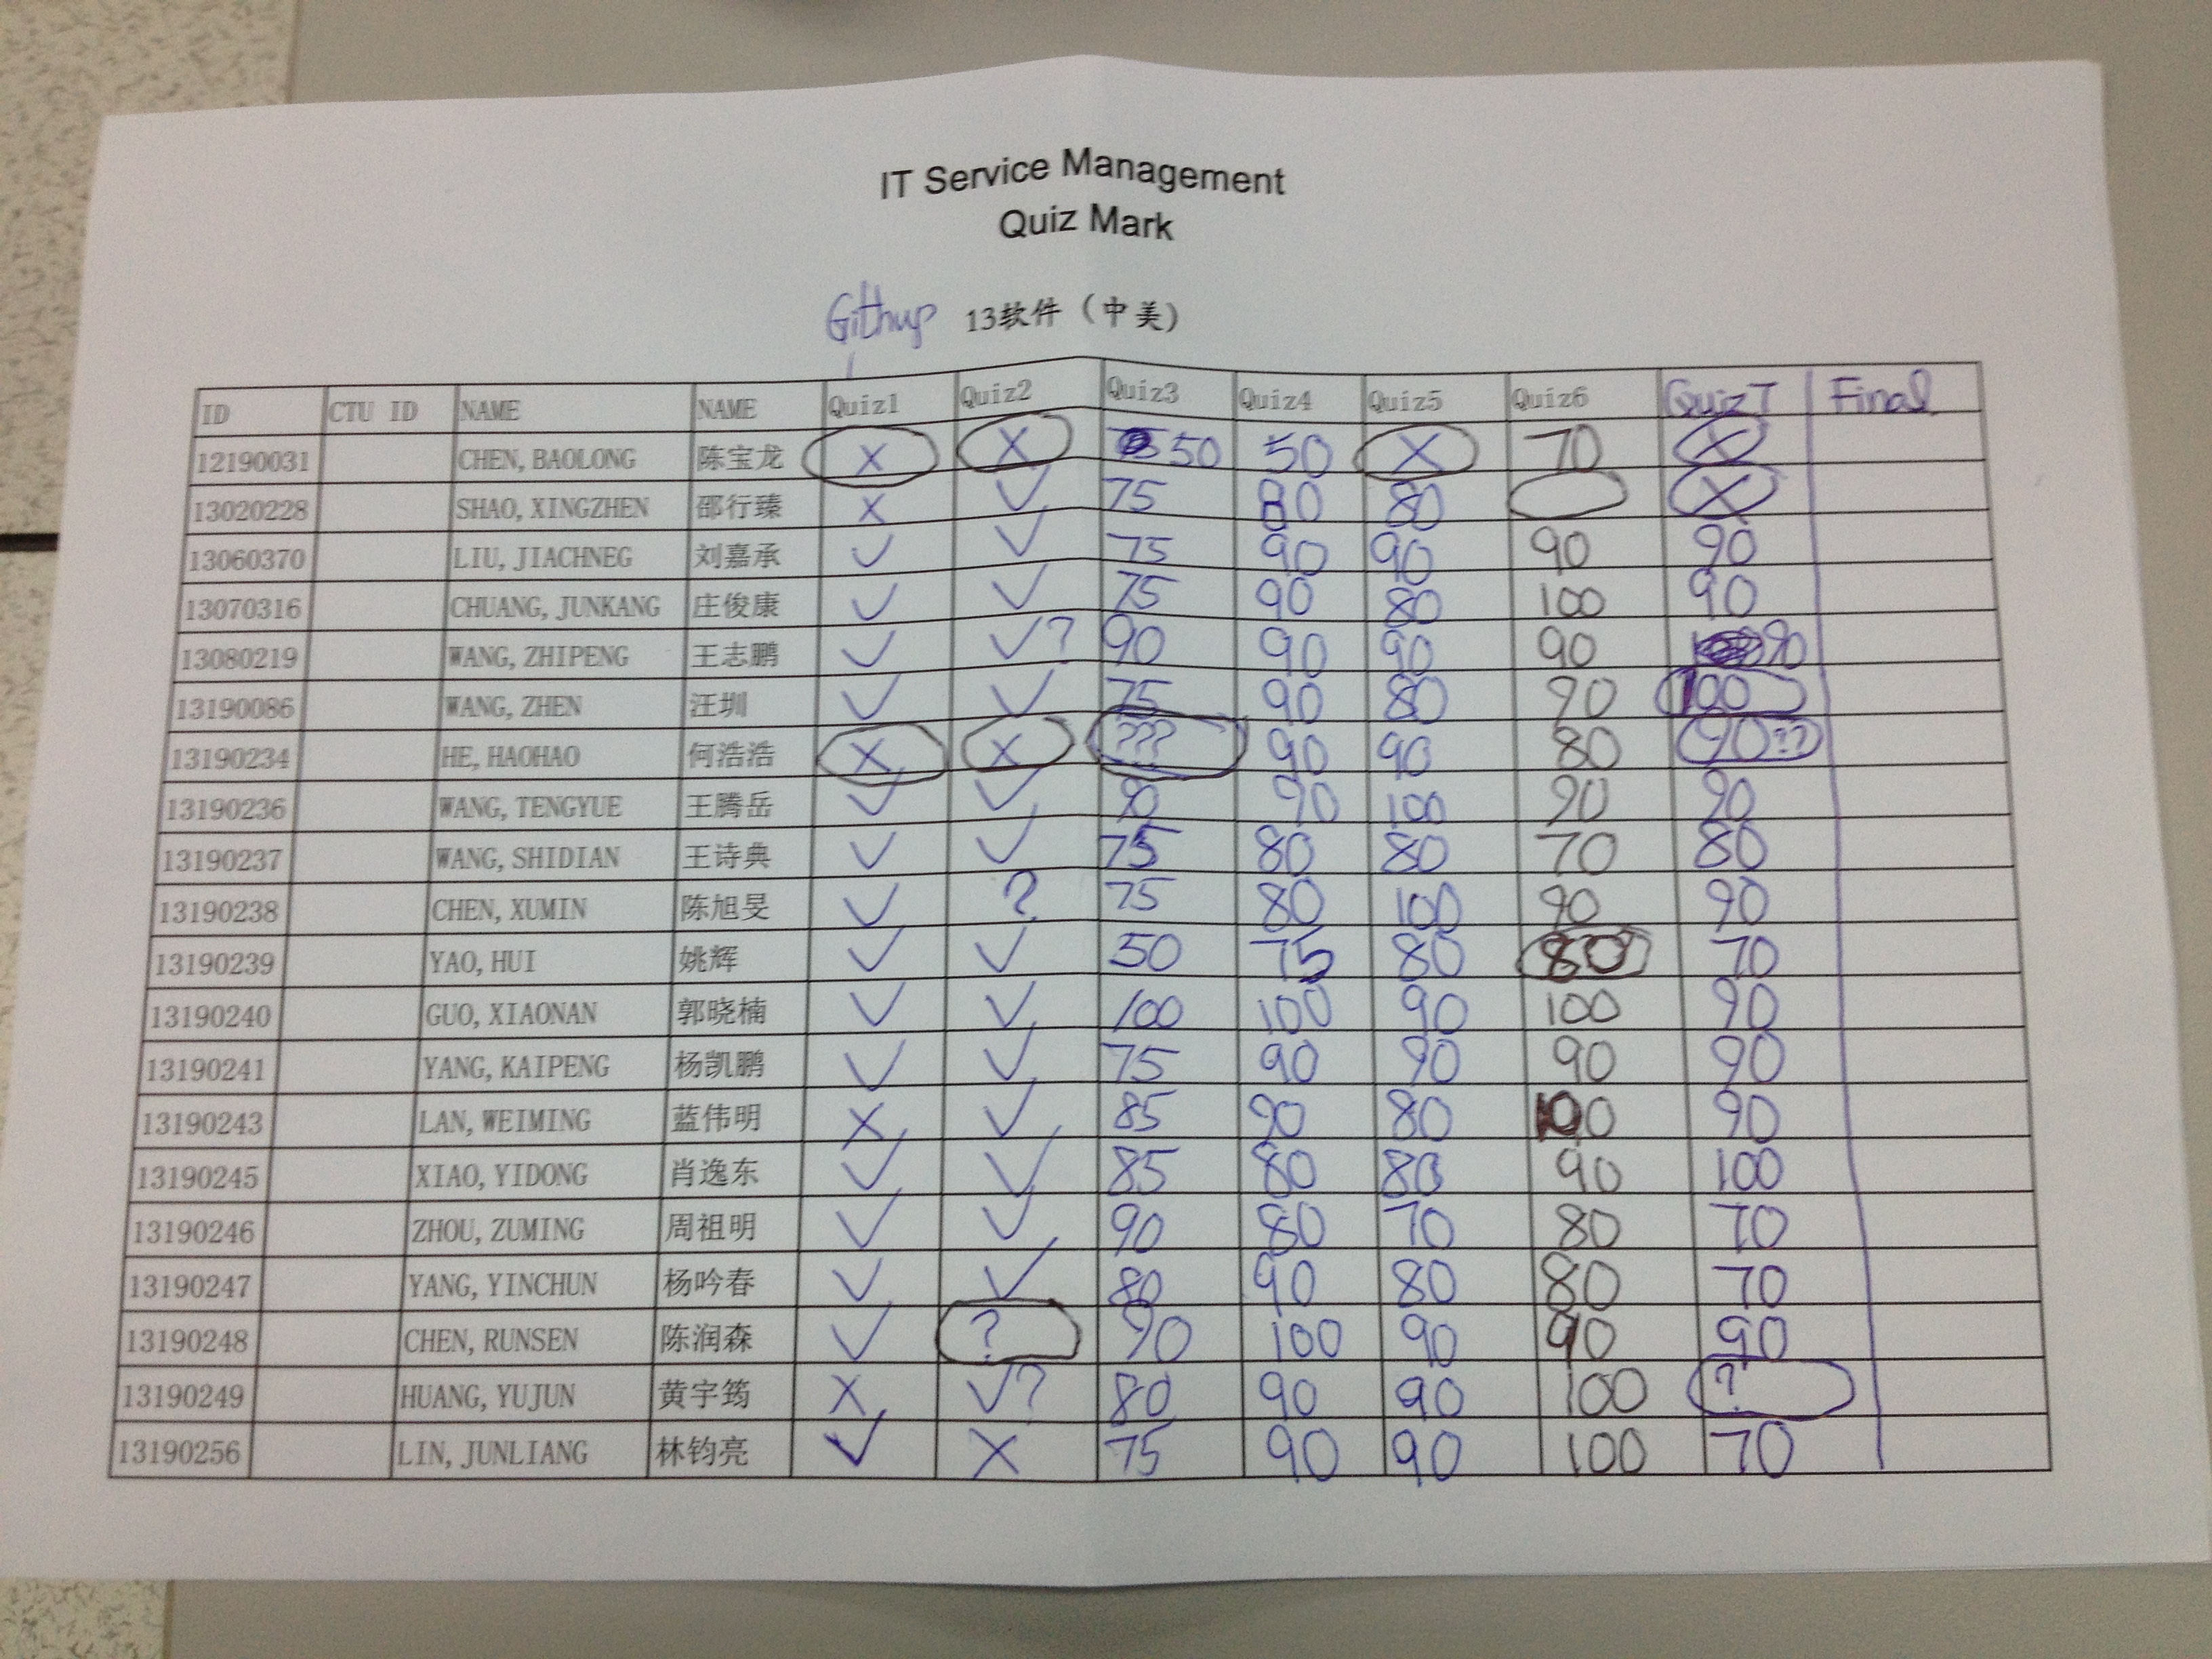 IT Service Management
Quiz Mark
Githup 13软件（中美）
ID CTU ID NAME NAME Quiz1 Quiz2 Quiz3 Quiz4 Quiz5 Quiz6 Quiz7 Final
12190031 CHEN, BAOLONG 陈宝龙 X X 50 50 X 70 X
13020228 SHAO, XINGZHEN 邵行臻 X √ 75 80 80 X
13060370 LIU, JIACHNEG 刘嘉承 √ √ 75 90 90 90 90
13070316 CHUANG, JUNKANG 庄俊康 √ √ 75 90 80 100 90
13080219 WANG, ZHIPENG 王志鹏 √ √? 90 90 90 90 90
13190086 WANG, ZHEN 汪圳 √ √ 75 90 80 70 100
13190234 HE, HAOHAO 何浩浩 X X ??? 90 90 80 90??
13190236 WANG, TENGYUE 王腾岳 √ √ 80 90 100 90 90
13190237 WANG, SHIDIAN 王诗典 √ √ 75 80 80 70 80
13190238 CHEN, XUMIN 陈旭旻 √ ? 75 80 100 90 90
13190239 YAO, HUI 姚辉 √ √ 50 75 80 80 70
13190240 GUO, XIAONAN 郭晓楠 √ √ 100 100 90 100 90
13190241 YANG, KAIPENG 杨凯鹏 √ √ 75 90 90 90 90
13190243 LAN, WEIMING 蓝伟明 X √ 85 90 80 100 90
13190245 XIAO, YIDONG 肖逸东 √ √ 85 80 80 90 100
13190246 ZHOU, ZUMING 周祖明 √ √ 90 80 70 80 70
13190247 YANG, YINCHUN 杨吟春 √ √ 80 90 80 80 70
13190248 CHEN, RUNSEN 陈润森 √ ? 90 100 90 90 90
13190249 HUANG, YUJUN 黄宇筠 X √? 80 90 90 100 ?
13190256 LIN, JUNLIANG 林钧亮 √ X 75 90 90 100 70